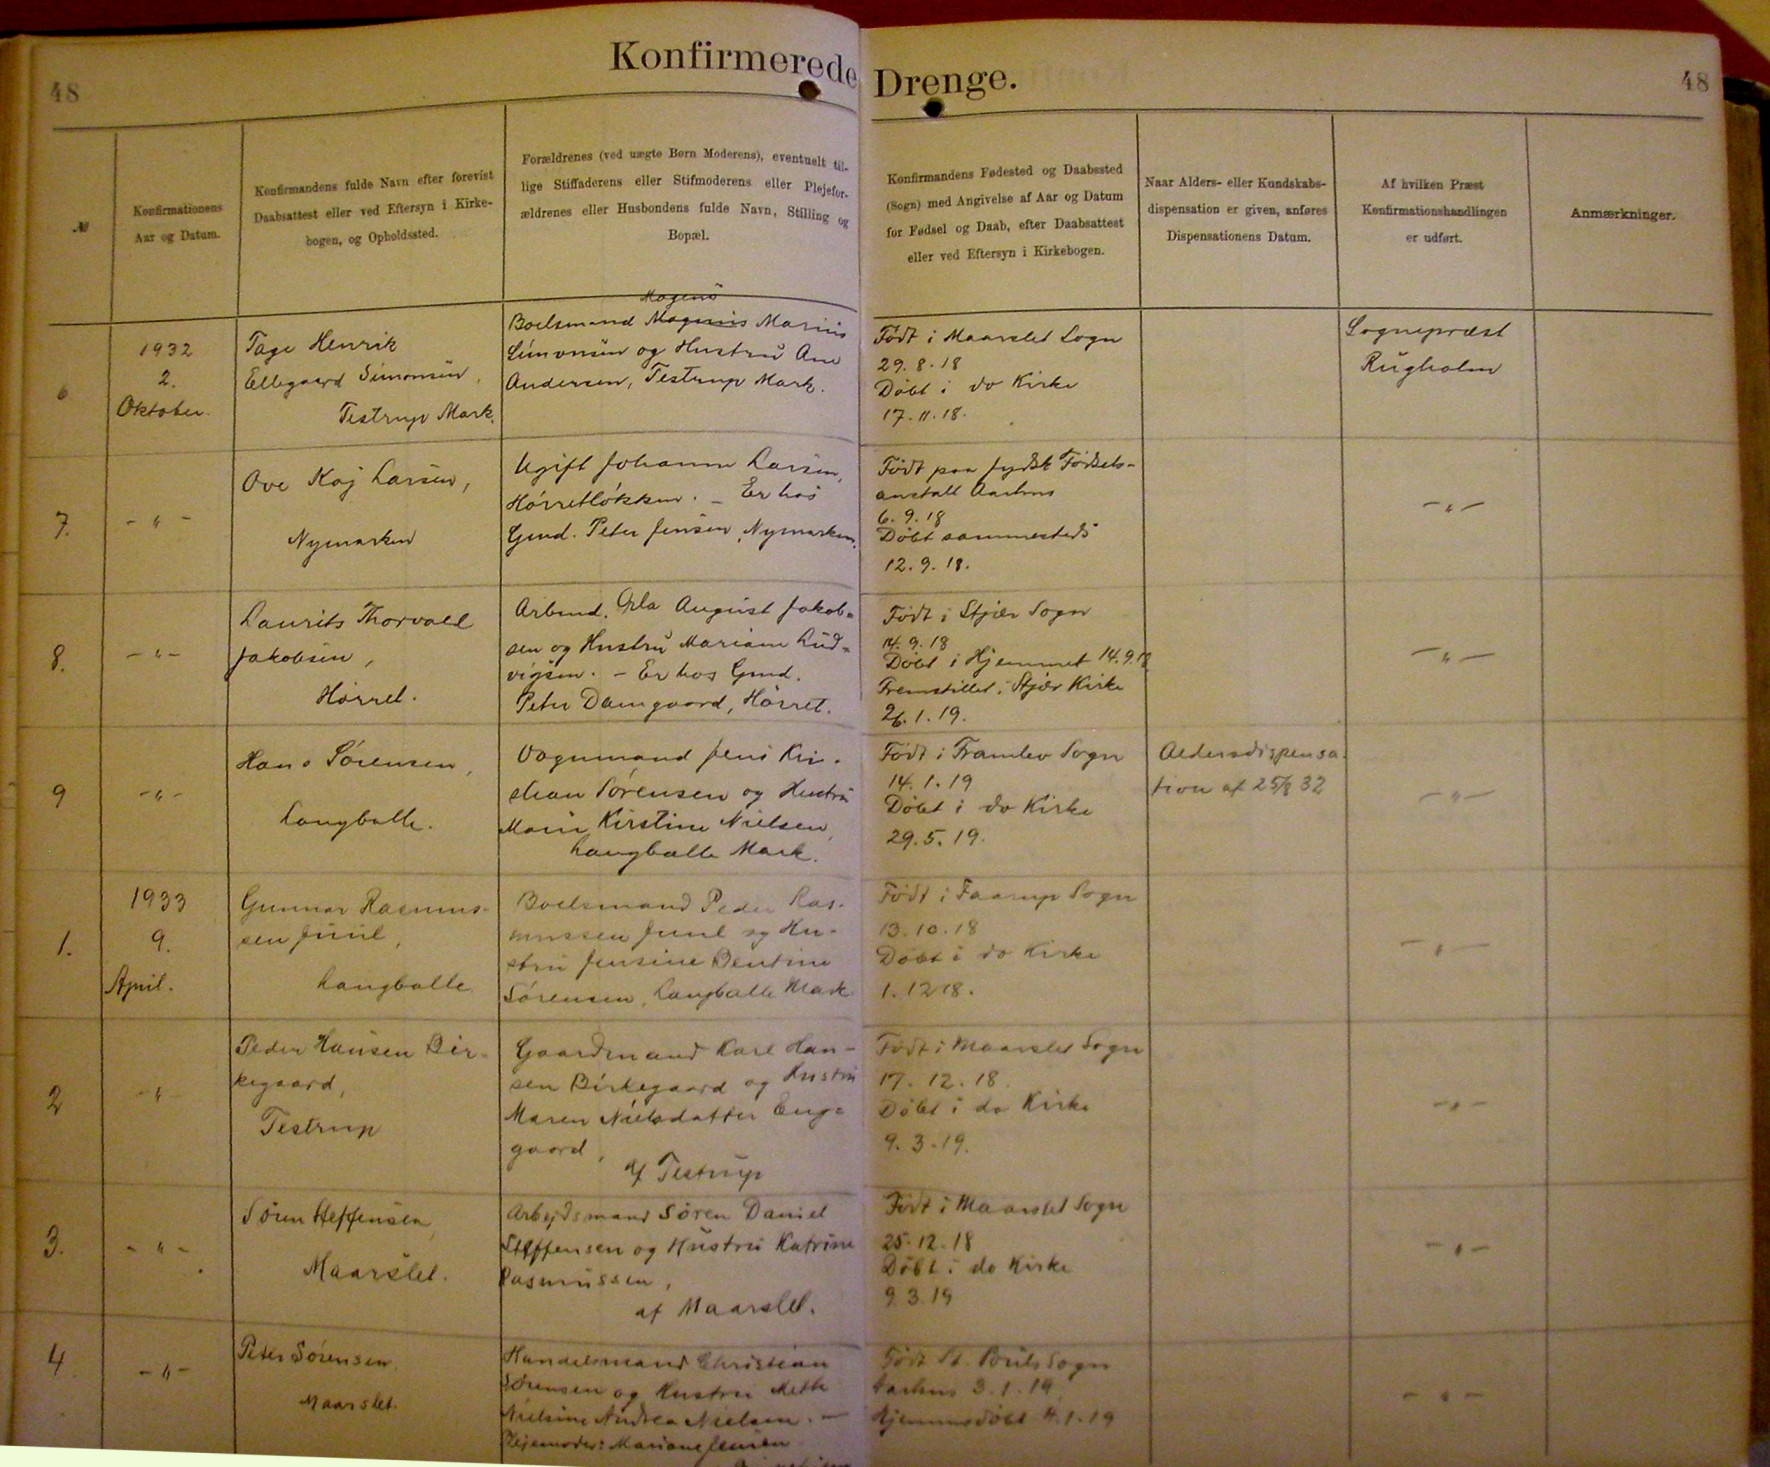 48
Konfirmerede Drenge.
48
№
Konfirmationens
Aar og Datum.
Konfirmandens fulde Navn efter forevist
Daabsattest eller ved Eftersyn i Kirke-
bogen, og Opholdssted.
Forældrenes (ved uægte Børn Moderens), eventuelt til-
lige Stiffaderens eller Stifmoderens eller Plejefor-
ældrenes eller Husbondens fulde Navn, Stilling og
Bopæl.
Konfirmandens Fødested og Daabssted
(Sogn) med Angivelse af Aar og Datum
for Fødsel og Daab, efter Daabsattest
eller ved Eftersyn i Kirkebogen.
Naar Alders- eller Kundskabs-
dispensation er given, anføres
Dispensationens Datum.
Af hvilken Præst
Konfirmationshandlingen
er udført.
Anmærkninger.
6
1932
2.
Oktober.
Tage Henrik
Ellegaard Simonsen,
Testrup Mark.
Mogens
Boelsmand Magnus Marius
Simonsen og Hustru Ane
Andersen, Testrup Mark.
Født i Maarslet Sogn
29.8.18
Døbt i do Kirke
17.11.18.
Sognepræst
Rugholm
7.
-"-
Ove Kaj Larsen,
Nymarken
Ugift Johanne Larsen,
Hörretløkken. - Er hos
Gmd. Peter Jensen, Nymarken.
Født paa Jydsk Fødsels-
anstalt Aarhus
6.9.18
Døbt sammesteds
12.9.18.
-"-
8.
-"-
Laurits Thorvald
Jakobsen,
Hörret.
Arbmd. Orla August Jakob-
sen og Hustru Mariane Lud-
vigsen. - Er hos Gmd.
Peter Damgaard, Hörret.
Født i Stjær Sogn
14.9.18
Døbt i Hjemmet 14.9.18
Fremstillet i Stjær Kirke
26.1.19.
-"-
9
-"-
Hans Sörensen,
Langballe.
Vognmand Jens Kri-
stian Sörensen og Hustru
Marie Kirstine Nielsen,
Langballe Mark.
Født i Framlev Sogn
14.1.19
Døbt i do Kirke
29.5.19.
Aldersdispensa-
tion af 25/8 32
-"-
1.
1933
9.
April.
Gunnar Rasmus-
sen Juul,
Langballe
Boelsmand Peder Ras-
mussen Juul og Hu-
stru Jensine Bentine
Sörensen, Langballe Mark
Født i Faarup Sogn
13.10.18
Døbt i do Kirke
1.12.18.
-"-
2
-"-
Peder Hansen Bir-
kegaard,
Testrup
Gaardmand Karl Han-
sen Birkegaard og Hustru
Maren Nielsdatter Eng-
gaard,
af Testrup
Født i Maarslet Sogn
17.12.18.
Døbt i do Kirke
9.3.19.
-"-
3.
-"-
Sören Steffensen,
Maarslet.
Arbejdsmand Sören Daniel
Steffensen og Hustru Katrine
Rasmussen,
af Maarslet.
Født i Maarslet Sogn
25.12.18
Døbt i do Kirke
9.3.19
-"-
4
-"-
Peter Sörensen
Maarslet.
Handelsmand Christian
Sörensen og Hustru Mette
Nielsine Andrea Nielsen. -
Plejemoder: Mariane Jensen
Født St. Pouls Sogn
Aarhus 3.1.19
Hjemmedøbt 4.1.19
-"-